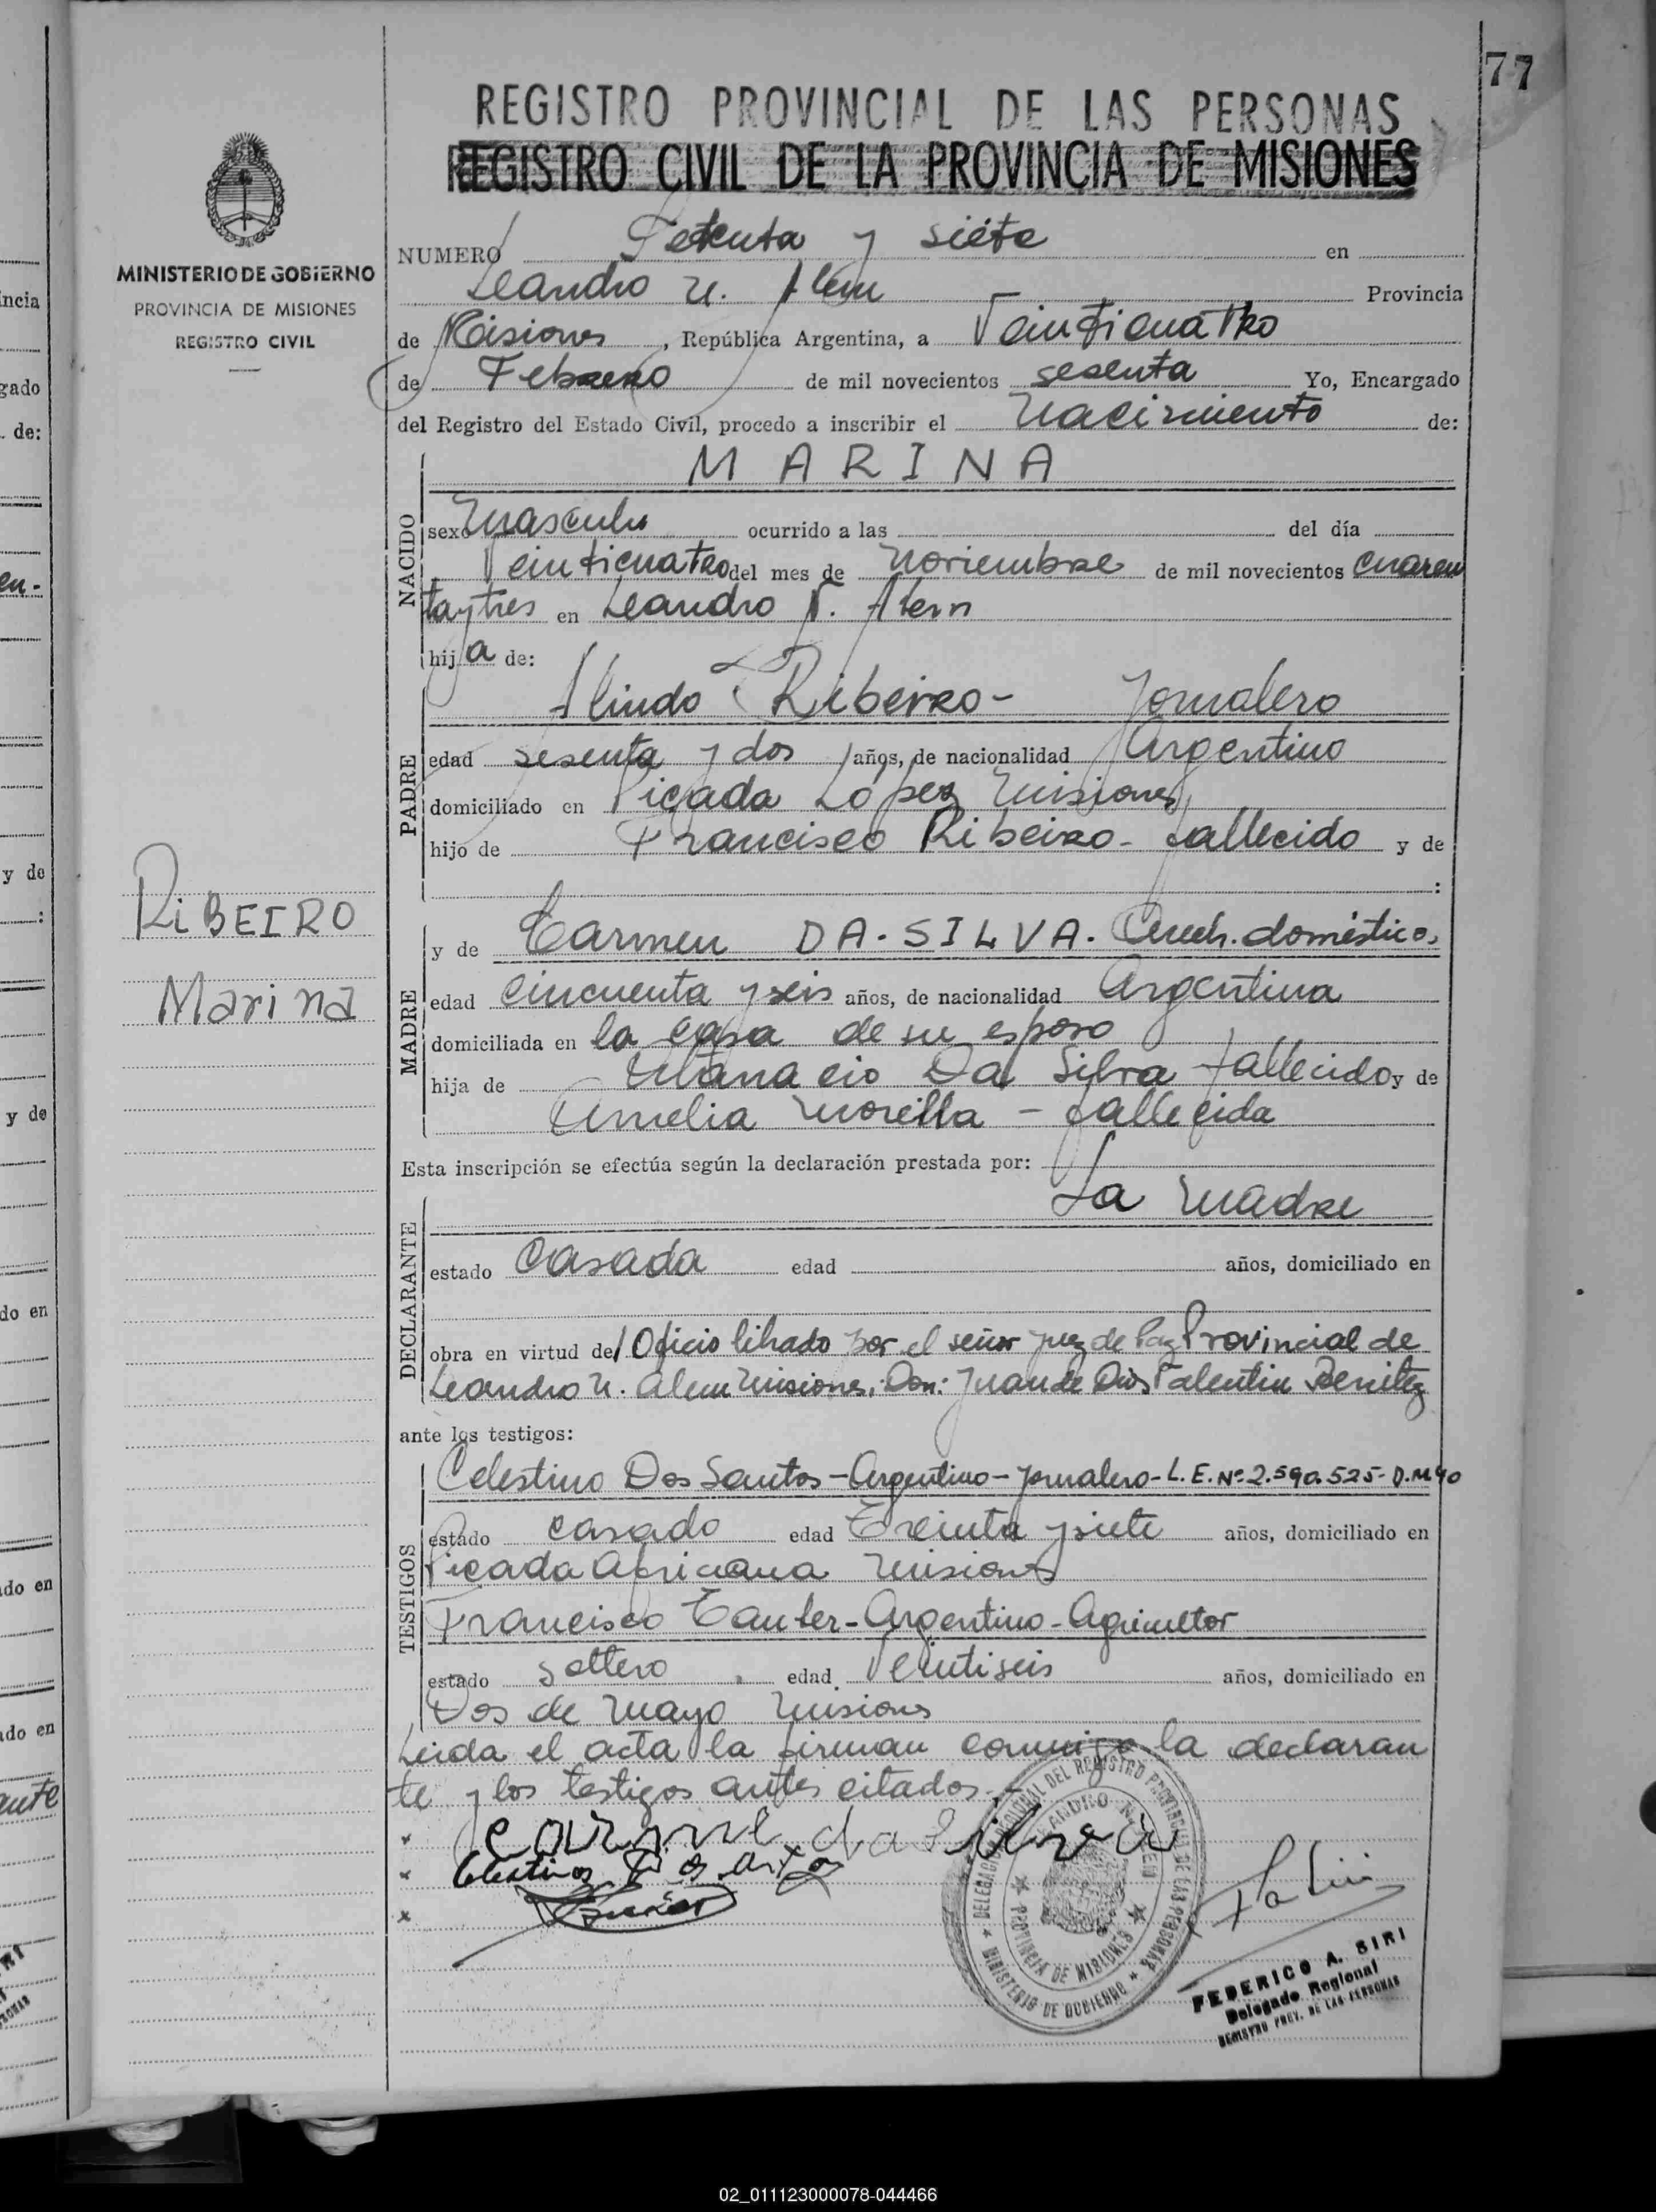 77
REGISTRO PROVINCIAL DE LAS PERSONAS
REGISTRO CIVIL DE LA PROVINCIA DE MISIONES
MINISTERIO DE GOBIERNO
PROVINCIA DE MISIONES
REGISTRO CIVIL
NUMERO Setenta y siete en
Leandro N. Alem Provincia
de Misiones, República Argentina, a Veinticuatro
de Febrero de mil novecientos sesenta Yo, Encargado
del Registro del Estado Civil, procedo a inscribir el Nacimiento de:
NACIDO
MARINA
sexo Masculu ocurrido a las del día
Veinticuatro del mes de Noviembre de mil novecientos cuaren
taytres en Leandro N. Alem
hija de:
PADRE
Alindo Ribeiro - Jornalero
edad sesenta y dos años, de nacionalidad Argentino
domiciliado en Picada López Misiones
hijo de Francisco Ribeiro - fallecido y de
:
RiBEIRO
Marina
MADRE
y de Carmen DA-SILVA. Queh. domésticos,
edad cincuenta y seis años, de nacionalidad Argentina
domiciliada en la casa de su esposo
hija de Da Silva fallecido y de
Amelia - fallecida
Esta inscripción se efectúa según la declaración prestada por:
La Madre
DECLARANTE
estado Casada edad años, domiciliado en
obra en virtud de/ Oficio librado por el señor juez de Paz Provincial de
Leandro N. Alem Misiones; Don: Juan de Dios Valentin Benitez
ante los testigos:
TESTIGOS
Celestino Dos Santos - Argentino - Jornalero - L.E. Nº 2.590.525 - D.M 40
estado casado edad Treinta y siete años, domiciliado en
Picada Africana Misiones
Francisco - Argentino - Agricultor
estado soltero edad Veintiseis años, domiciliado en
Dos de Mayo Misiones
Leida el acta la firman conmigo la declaran
te y los testigos antes citados.-
da Silva
Celestino
DELEGACION REGIONAL DEL REGISTRO PROVINCIAL DE LAS PERSONAS
LEANDRO N. ALEM
PROVINCIA DE MISIONES
MINISTERIO DE GOBIERNO
FEDERICO A. SIRI
Delegado Regional
REGISTRO PROV. DE LAS PERSONAS
02_011123000078-044466